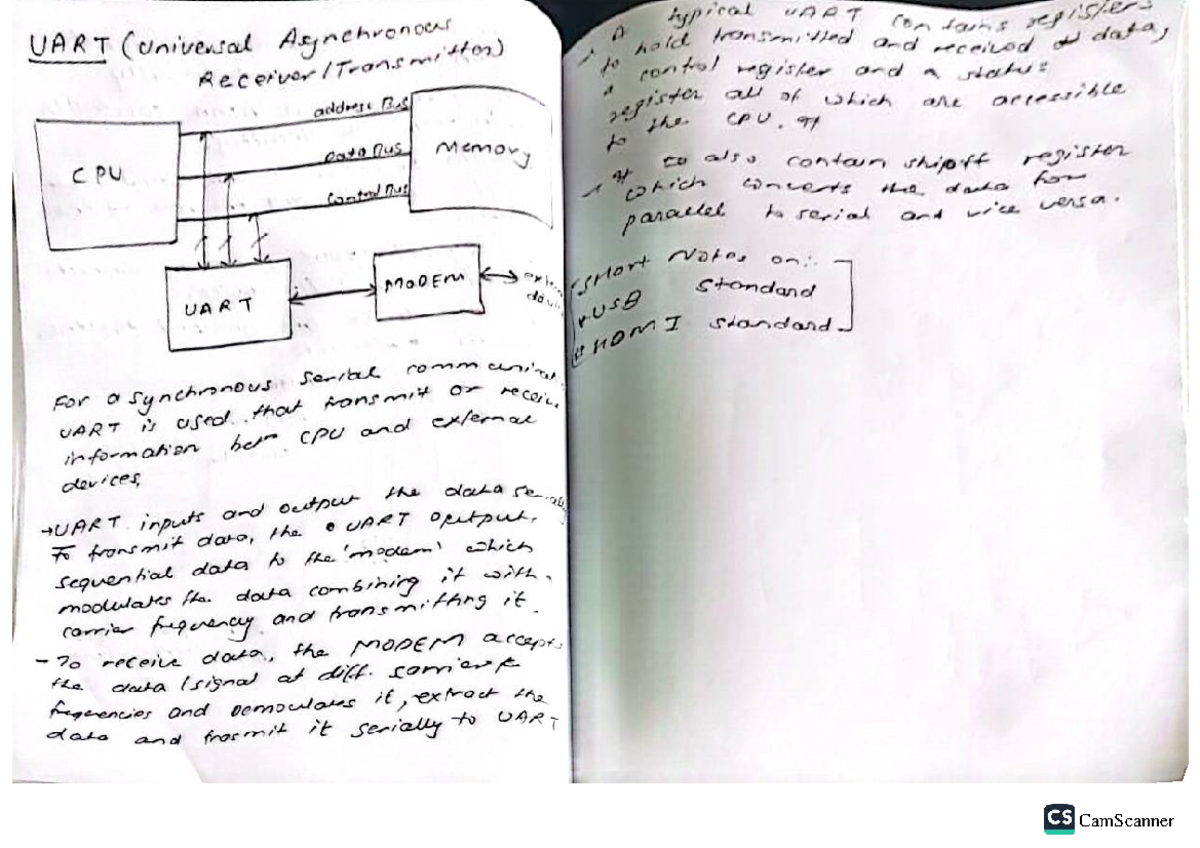 UART (Universal Asynchronous
Receiver/Transmitter)
address Bus
Data Bus
Control Bus
CPU
Memory
UART
MODEM
For asynchronous serial
UART is used that transmit or
information betn CPU and external
devices,
→UART inputs and output the data
To transmit data, the UART output
sequential data to the 'modem' which
modulates the data combining it with
carrier frequency and transmitting it.
- To receive data, the MODEM accepts
the data/signal at diff. carrier
frequencies and demoulates it, extract the
data and trasmit it serially to UART
A typical UART contains registers
to hold transmitted and received data,
a control register and a status
register all of which are accessible
to the CPU.
also contain shipft register
which converts the data for
parallel to serial and vice versa.
Short Notes on:-
USB standard
HDMI standard.
CS CamScanner